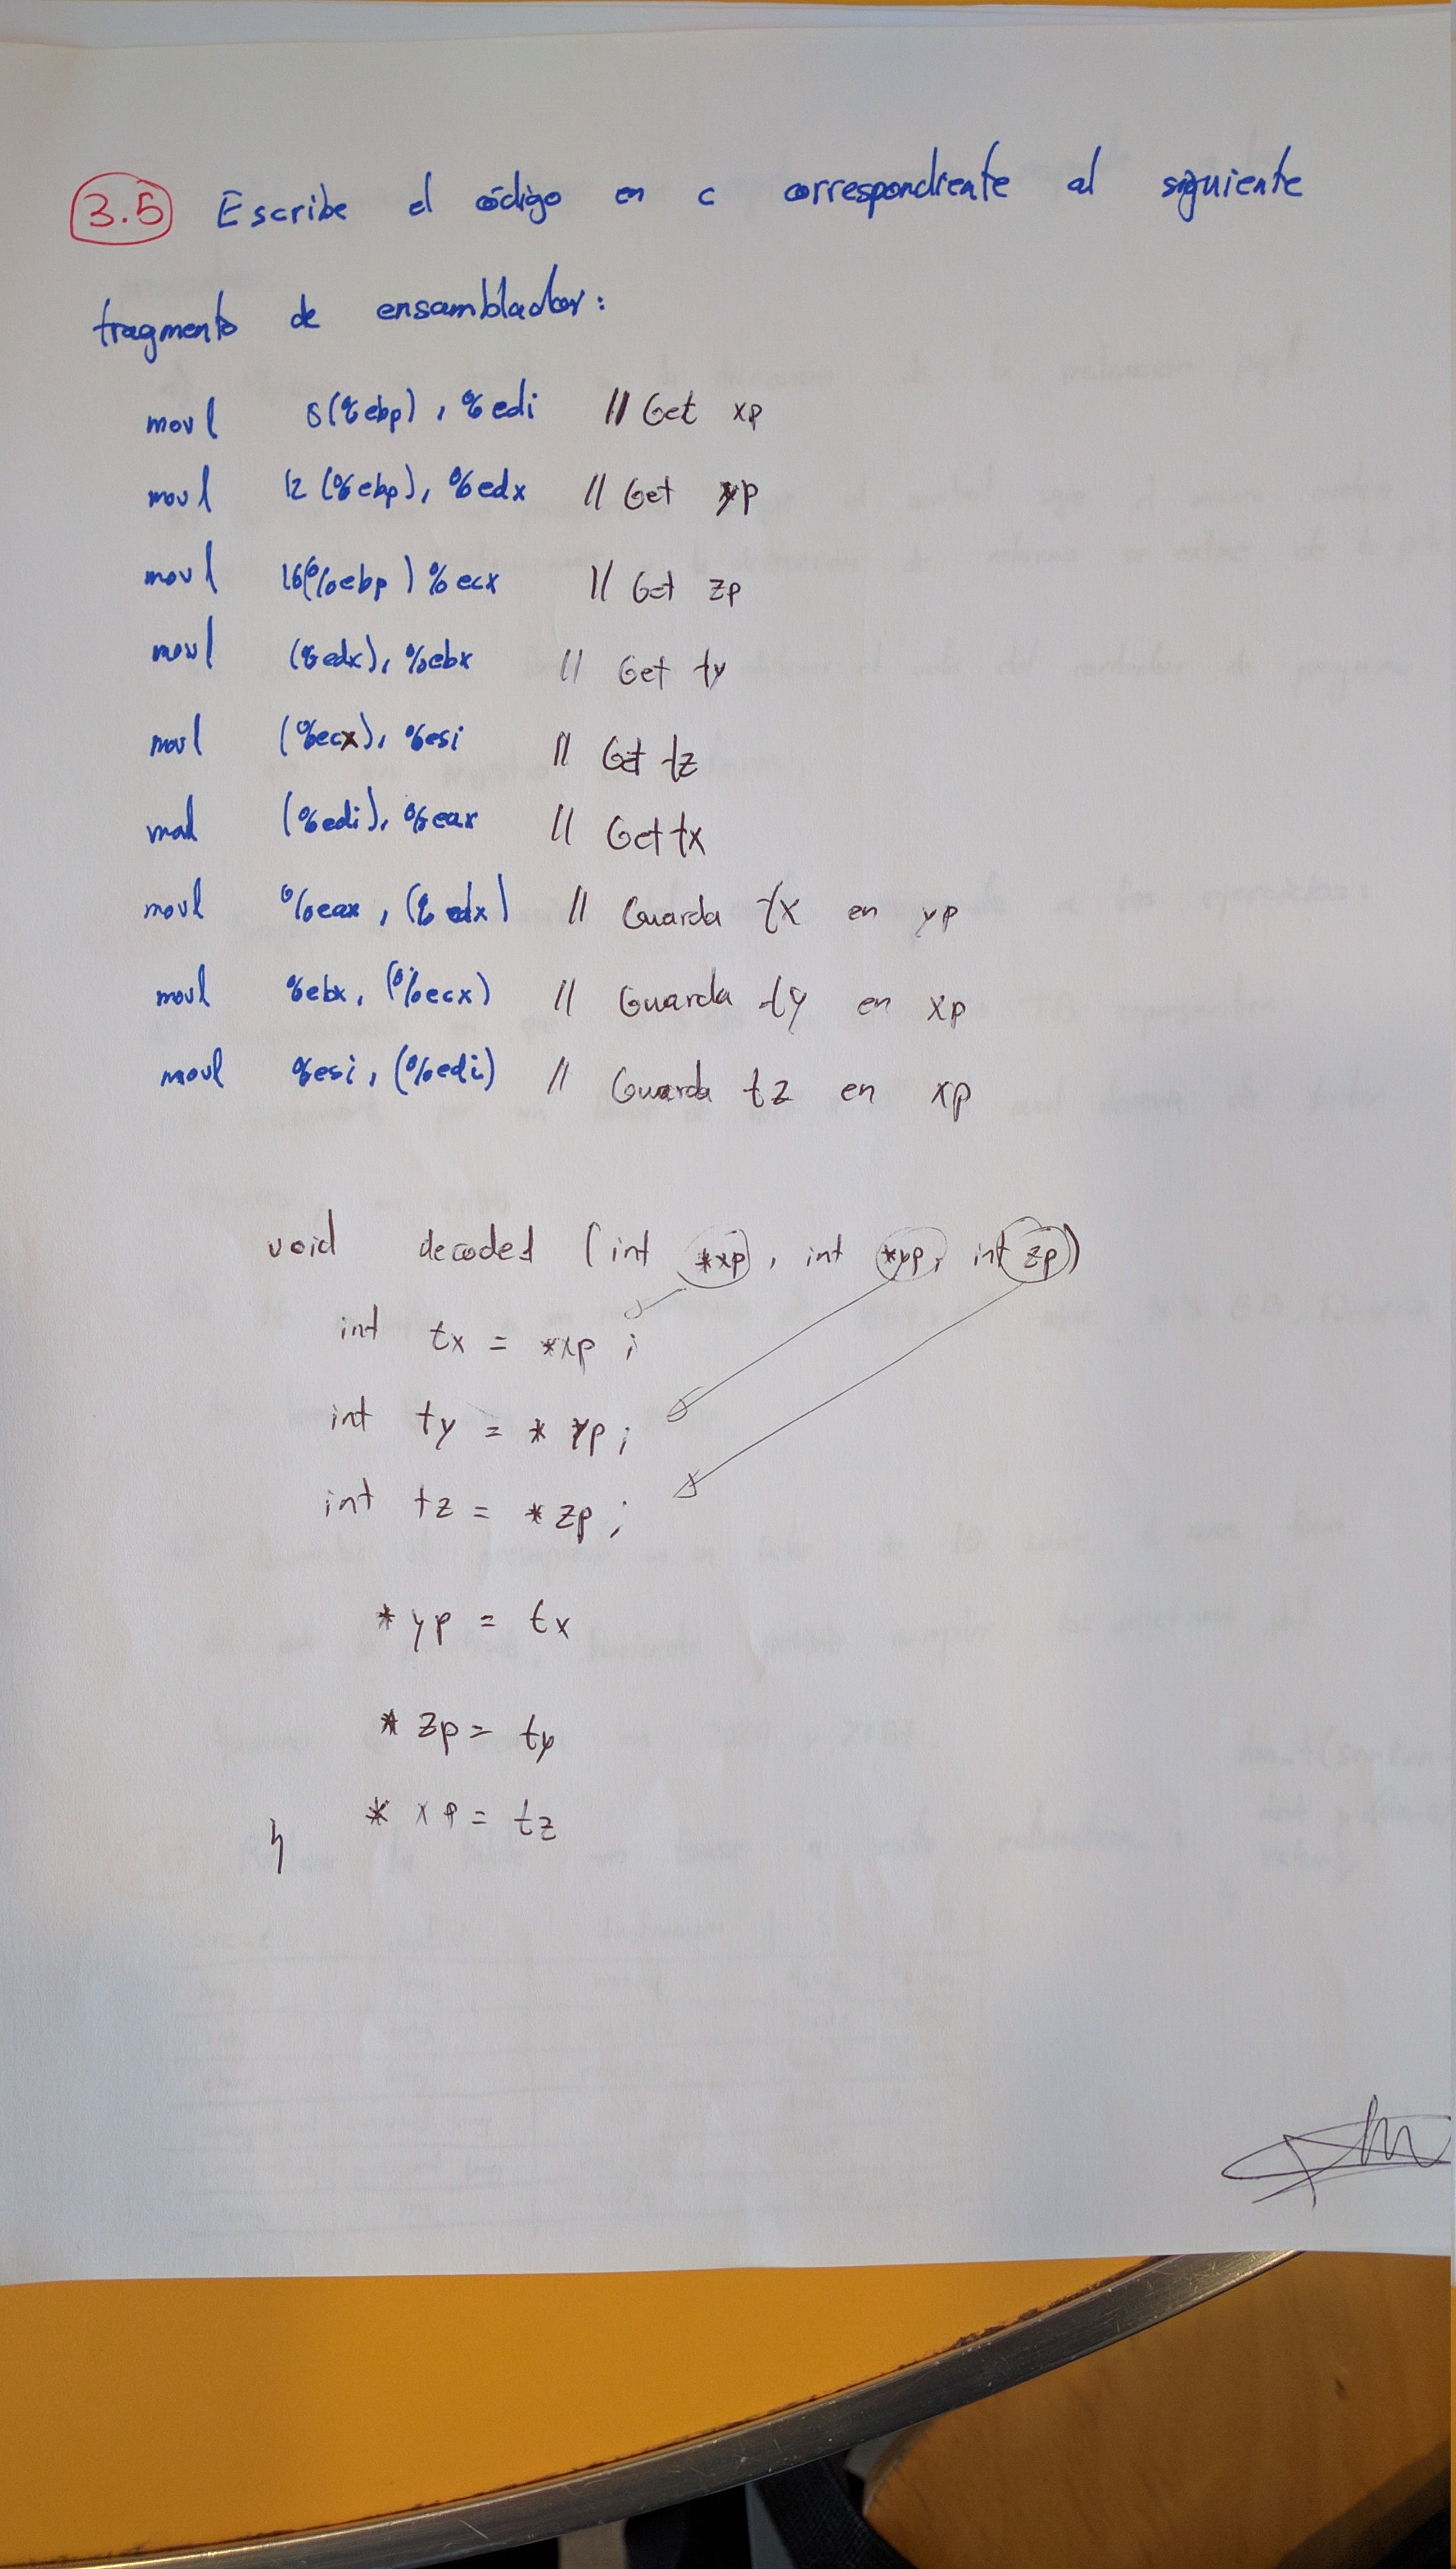 3.5 Escribe el código en c correspondiente al siguiente
fragmento de ensamblador:
movl 8(%ebp), %edi // Get xp
movl 12(%ebp), %edx // Get yp
movl 16(%ebp) %ecx // Get zp
movl (%edx), %ebx // Get ty
movl (%ecx), %esi // Get tz
movl (%edi), %eax // Get tx
movl %eax, (%edx) // Guarda tx en yp
movl %ebx, (%ecx) // Guarda ty en xp
movl %esi, (%edi) // Guarda tz en xp
void decoded (int *xp, int *yp, int zp)
int tx = *xp;
int ty = *yp;
int tz = *zp;
*yp = tx
*zp = ty
*xp = tz
}